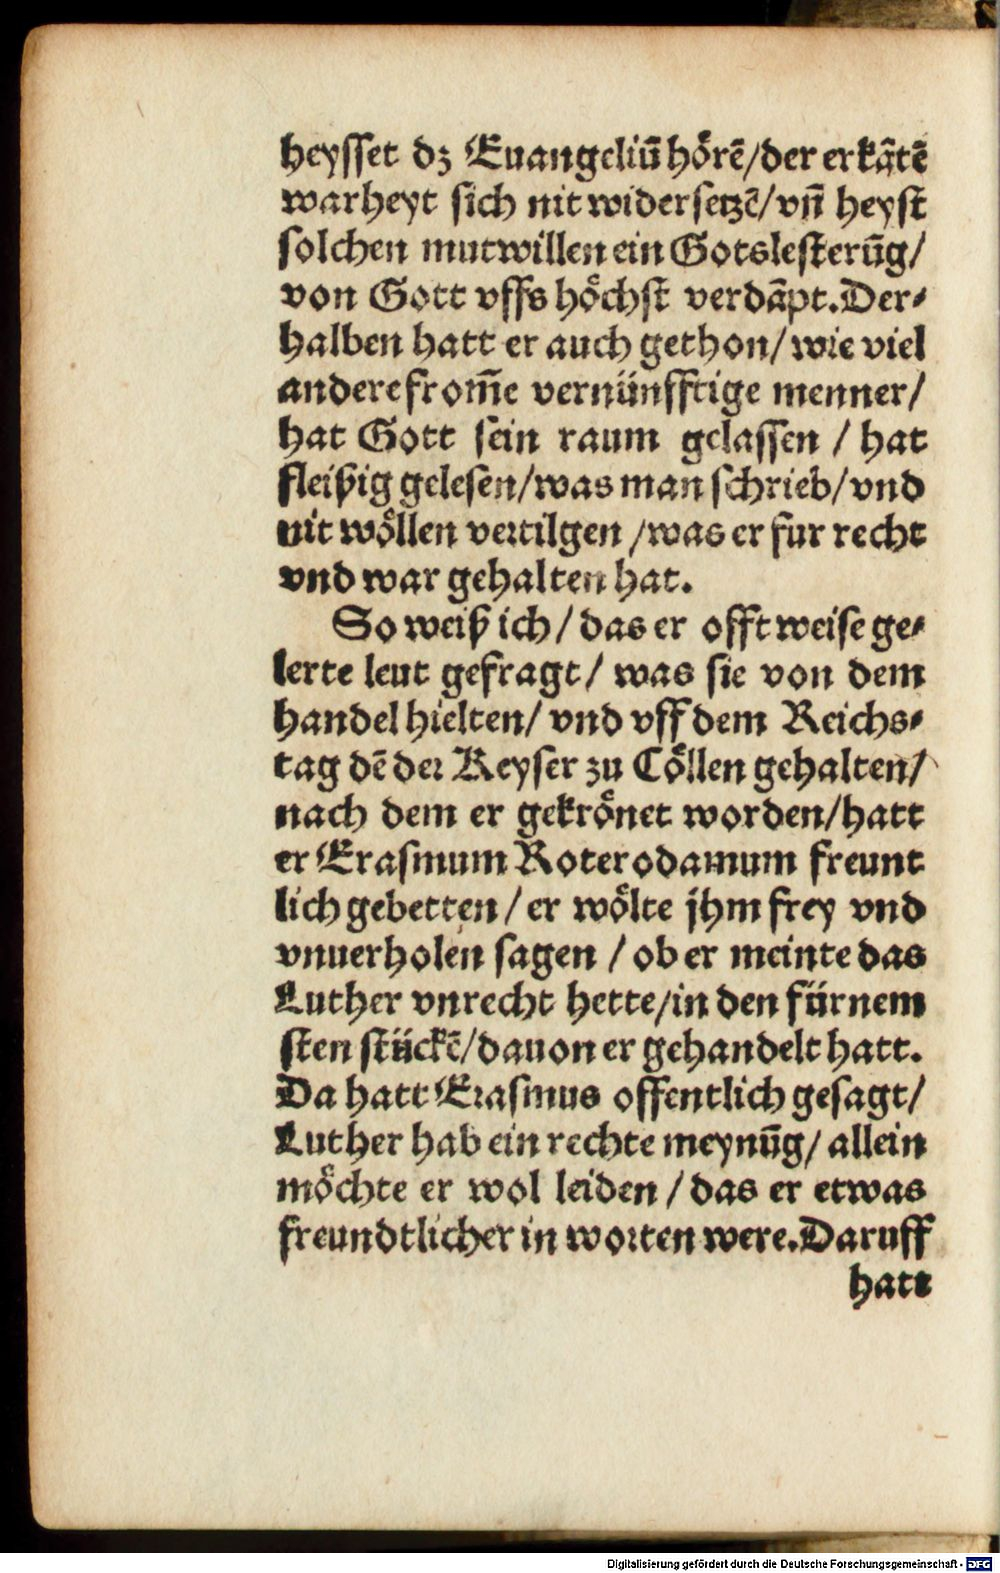 heysset dz Euangeliũ hörẽ/der erkãtẽ
warheyt sich nit widersetzẽ/vñ heyst
solchen mutwillen ein Gotslesterũg/
von Gott vffs höchst verdãpt. Der⸗
halben hatt er auch gethon/wie viel
andere from̃e vernünfftige menner/
hat Gott sein raum gelassen / hat
fleißig gelesen/was man schrieb/vnd
nit wöllen vertilgen /was er fur recht
vnd war gehalten hat.
So weiß ich/ das er offt weise ge⸗
lerte leut gefragt/ was sie von dem
handel hielten/ vnd vff dem Reichs⸗
tag dẽ der Keyser zu Cöllen gehalten/
nach dem er gekrönet worden/hatt
er Erasmum Roterodamum freunt
lich gebetten/ er wölte jhm frey vnd
vnuerholen sagen / ob er meinte das
Luther vnrecht hette/in den fürnem
sten stückẽ/dauon er gehandelt hatt.
Da hatt Erasmus offentlich gesagt/
Luther hab ein rechte meynũg/ allein
möchte er wol leiden / das er etwas
freundtlicher in worten were. Daruff
hatt
Digitalisierung gefördert durch die Deutsche Forschungsgemeinschaft - DFG